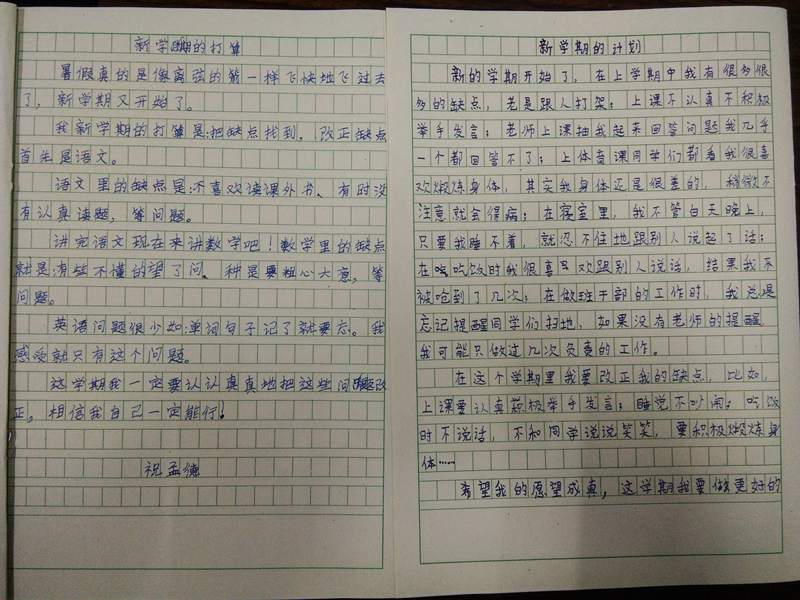 新学期的打算
暑假真的是像离弦的箭一样飞快地飞过去
了，新学期又开始了。
我新学期的打算是:把缺点找到，改正缺点
首先是语文。
语文里的缺点是:不喜欢读课外书、有时没
有认真读题，等问题。
讲完语文现在来讲数学吧！数学里的缺点
就是:有些不懂的望了问、种是要粗心大意，等
问题。
英语问题很少如:单词句子记了就要忘。我
感受就只有这个问题。
这学期我一定要认认真真地把这些问题改
正，相信我自己一定能行！
祝孟德
新学期的计划
新的学期开始了，在上学期中我有很多很
多的缺点，老是跟人打架；上课不认真不积极
举手发言；老师上课抽我起来回答问题我几乎
一个都回答不了；上体育课同学们都看我很喜
欢煅炼身体，其实我身体还是很差的，稍微不
注意就会得病；在寝室里，我不管白天晚上，
只要我睡不着，就忍不住地跟别人说起了话；
在吃饭时我很喜欢跟别人说话，结果我不
被呛到了几次；在做班干部的工作时，我总是
忘记提醒同学们扫地，如果没有老师的提醒
我可能只做过几次负责的工作。
在这个学期里我要改正我的缺点，比如，
上课要认真积极举手发言；睡觉不吵闹；吃饭
时不说话，不和同学说说笑笑，要积极煅炼身
体……
希望我的愿望成真，这学期我要做更好的